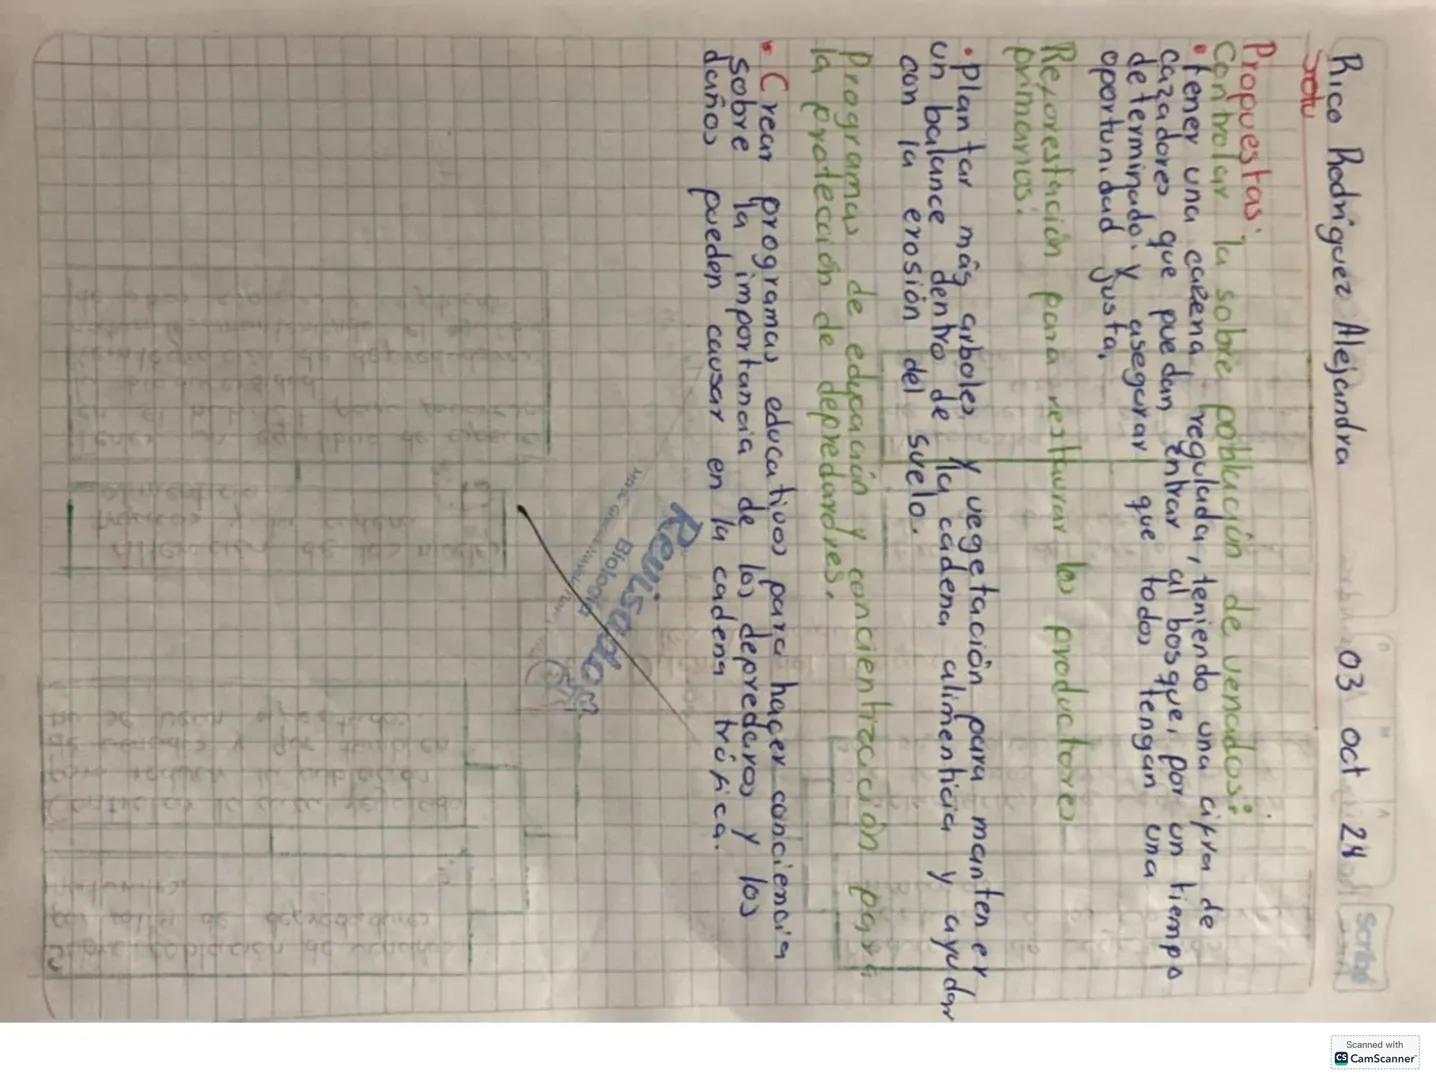 Rico Rodriguez Alejandra 03 oct 24
Soto
Scribe
Propuestas:
Controlar la sobre población de venados:
• tener una carena regulada, teniendo una cifra de
cazadores que puedan entrar al bosque, por un tiempo
determinado. y asegurar que todos tengan una
oportunidad justa.
Reforestación para restaurar los productores
primarios:
• plantar más arboles y vegetación para mantener
un balance dentro de la cadena alimenticia y ayudar
con la erosión del suelo.
Programas de educación y concientración para
la protección de depredardres.
• Crear programas educativos para hacer conciencia
sobre la importancia de los depredaros y los
daños pueden causar en la cadena trófica.
Revisado
Biología
Scanned with
CS CamScanner